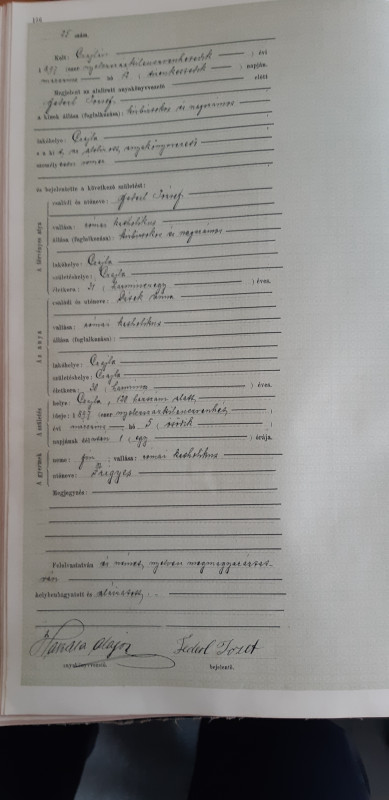 116
25 szám.
Kelt: Czejla
1897 ezer nyolczszázkilenczvenhetedik évi
marczius hó 12 tizenkettedik napján.
Megjelent az alulirott anyakönyvvezető előtt
József
a kinek állása (foglalkozása): és
lakóhelye: Czejla
a ki az alulirott anyakönyvvezető
személyesen ismer
és bejelentette a következő születést:
A törvényes atya
családi és utóneve: József
vallása: római katholikus
állása (foglalkozása): és
lakóhelye: Czejla
születéshelye: Czejla
életkora: 31 harminczegy éves.
Az anya
családi és utóneve: Anna
vallása: római katholikus
állása (foglalkozása):
lakóhelye: Czejla
születéshelye: Czejla
életkora: 30 harmincz éves.
A születés
helye: Czejla, házszám alatt,
ideje: 1897 ezer nyolczszázkilenczvenhét,
évi marczius hó 5 ötödik
napjának délután 1 egy órája.
A gyermek
neme: fiu vallása: római katholikus
utóneve: Frigyes
Megjegyzés:
Felolvastatván és német nyelven megmagyaráztat-
ván
helybenhagyatott és aláiratott.
anyakönyvvezető. bejelentő.